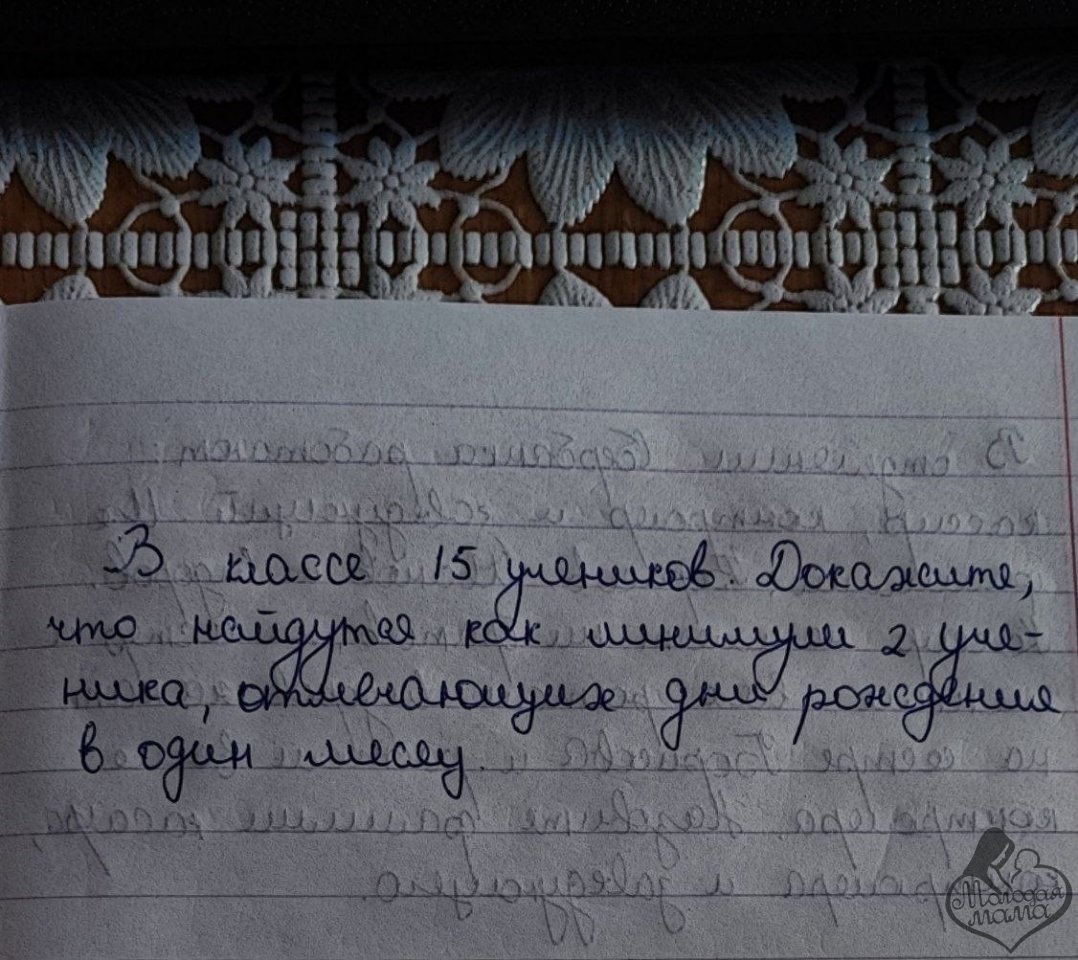 В классе 15 учеников. Докажите,
что найдутся как минимум 2 уче-
ника, отмечающих дни рождения
в один месяц.
Молодая
мама